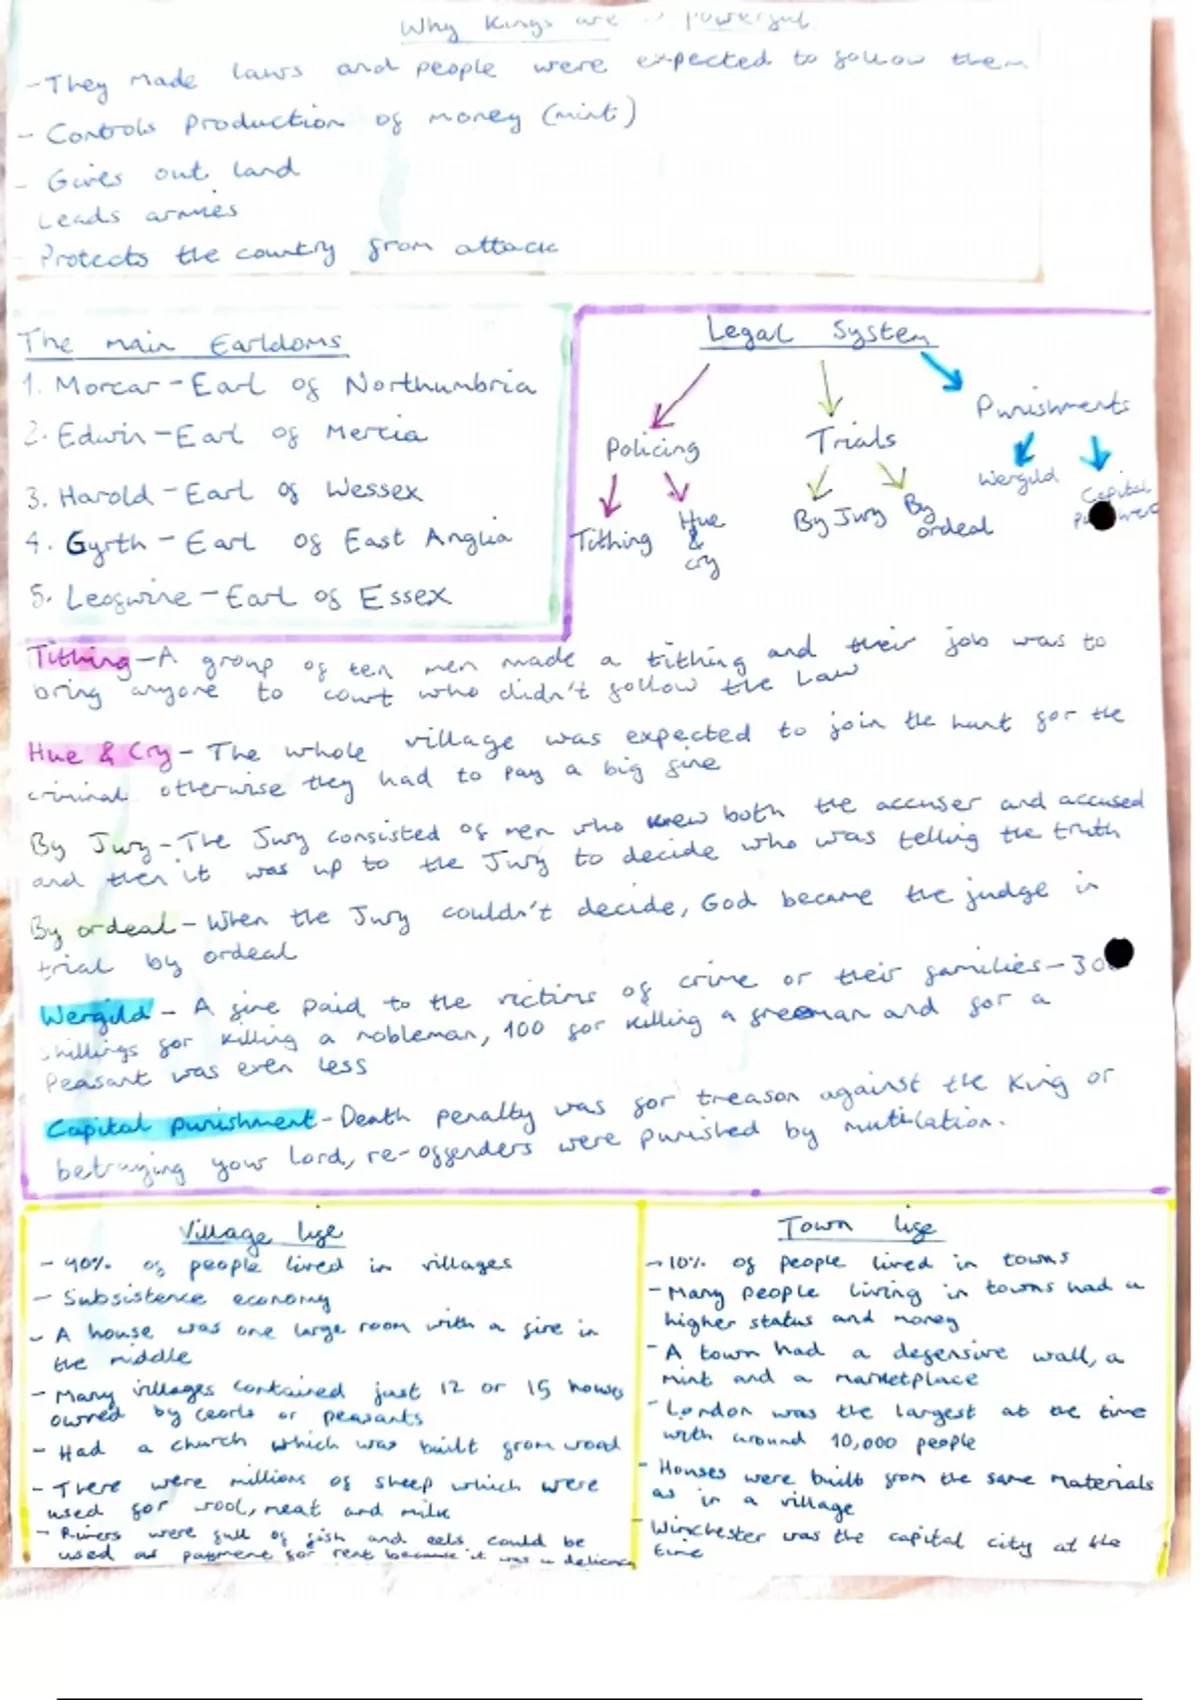 Why Kings are powerful
- They made laws and people were expected to follow them
- Controls production of money (mint)
- Gives out land
Leads armies
- Protects the country from attack
The main Earldoms
1. Morcar - Earl of Northumbria
2. Edwin - Earl of Mercia
3. Harold - Earl of Wessex
4. Gyrth - Earl of East Anglia
5. Leofwine - Earl of Essex
Legal System
Policing
Trials
Punishments
Tithing
Hue
&
cry
By Jury
By
ordeal
Wergild
Capital
Tithing - A group of ten men made a tithing and their job was to
bring anyone to court who didn't follow the law
Hue & Cry - The whole village was expected to join the hunt for the
criminal otherwise they had to pay a big fine
By Jury - The Jury consisted of men who knew both the accuser and accused
and then it was up to the Jury to decide who was telling the truth
By ordeal - When the Jury couldn't decide, God became the judge in
trial by ordeal
Wergild - A fine paid to the victims of crime or their families -
shillings for killing a nobleman, 100 for killing a freeman and for a
Peasant was even less
Capital punishment - Death penalty was for treason against the King or
betraying your lord, re-offenders were punished by mutilation.
Village life
- 90% of people lived in villages
- Subsistence economy
- A house was one large room with a fire in
the middle
- Many villages contained just 12 or 15 houses
owned by ceorls or peasants
- Had a church which was built from wood
- There were millions of sheep which were
used for wool, meat and milk
- Rivers were full of fish and eels could be
used as payment for rent because it was a
Town life
- 10% of people lived in towns
- Many people living in towns had a
higher status and money
- A town had a defensive wall, a
mint and a marketplace
- London was the largest at the time
with around 10,000 people
- Houses were built from the same materials
as in a village
- Winchester was the capital city at the
time